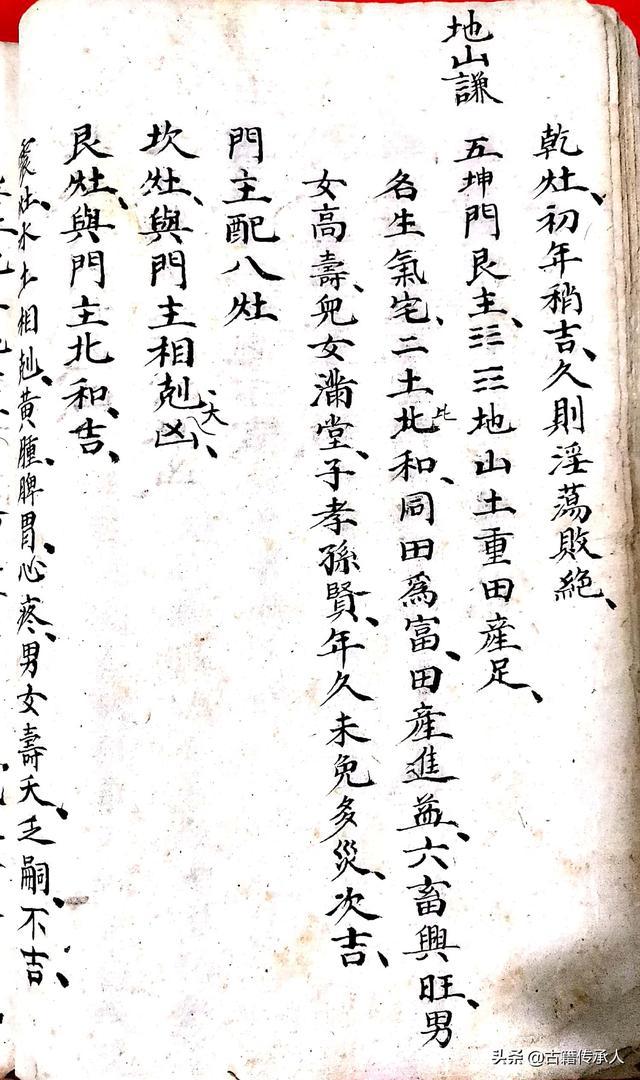 乾灶、初年稍吉、久則淫蕩敗絕、
地山謙
五坤門艮主、☷☶地山土重田産足、
名生氣宅、二土北比和、同田爲富、田産進益、六畜興旺、男
女高壽、兒女滿堂、子孝孫賢、年久未免多災、次吉、
門主配八灶
坎灶、與門主相剋、大凶、
艮灶、與門主北和、吉、
灶水土相剋、黃腫脾胃、心疼、男女壽夭、乏嗣、不吉、
头条 @古籍传承人